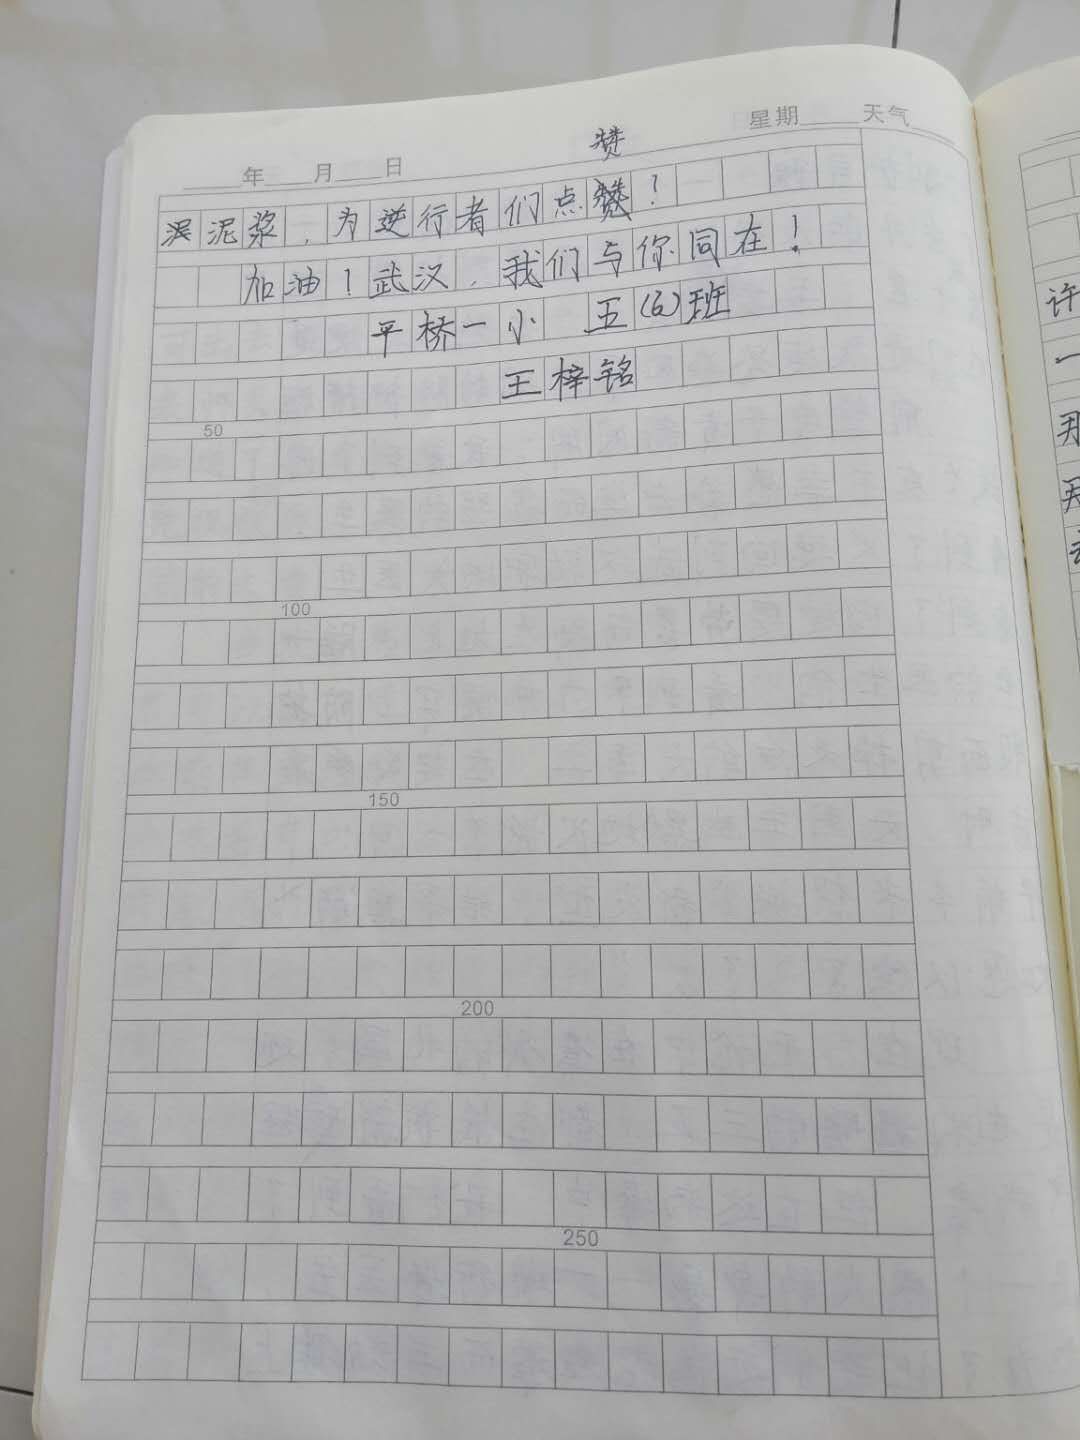 星期 天气
年 月 日
赞
泥浆，为逆行者们点赞！
加油！武汉，我们与你同在！
平桥一小 五(6)班
王梓铭
50
100
150
200
250
许
一